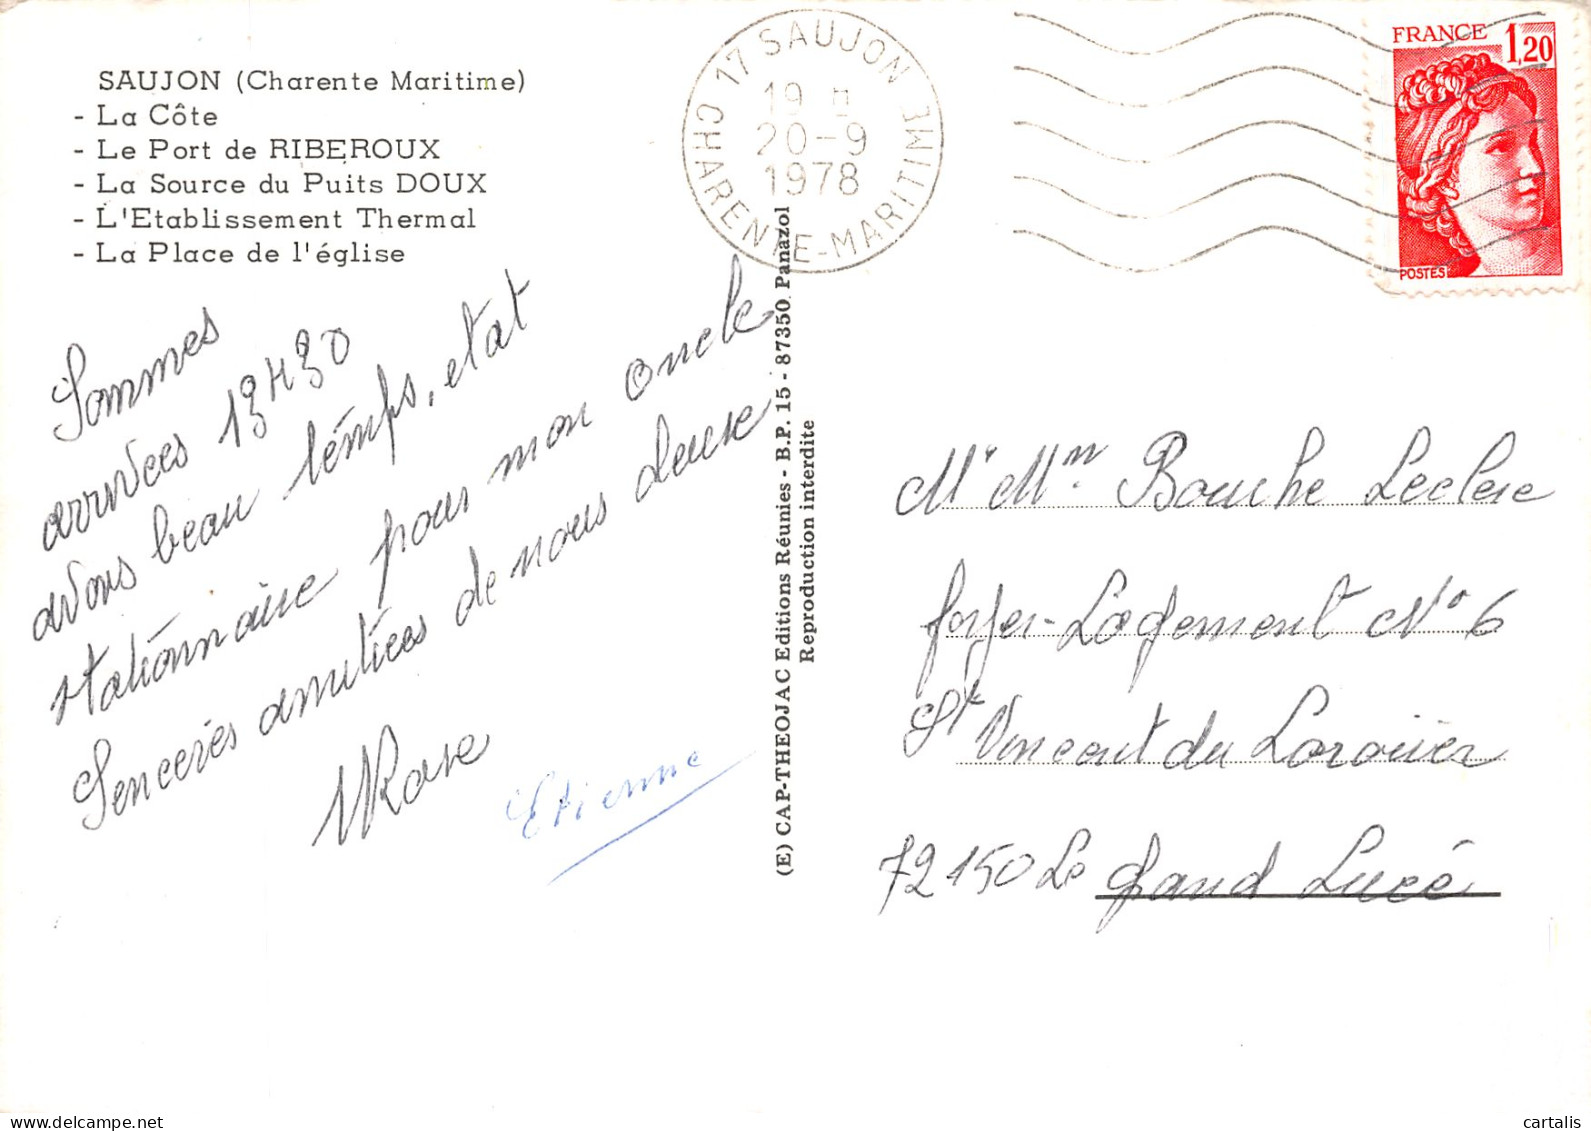 SAUJON (Charente Maritime)
- La Côte
- Le Port de RIBEROUX
- La Source du Puits DOUX
- L'Etablissement Thermal
- La Place de l'église
17 SAUJON
CHARENTE-MARITIME
19 H
20-9
1978
FRANCE 1,20
POSTES
Sommes
arrivées 13H30
avons beau temps, etat
stationnaire pour mon oncle
Sencères amitiées de nous deux
Rose
Etienne
(E) CAP-THEOJAC Editions Réunies - B.P. 15 - 87350 Panazol
Reproduction interdite
Mr Mm Bouche Leclerc
foyer-Logement No 6
St Vincent du Lorouër
72150 Le Grand Lucé
cartalis